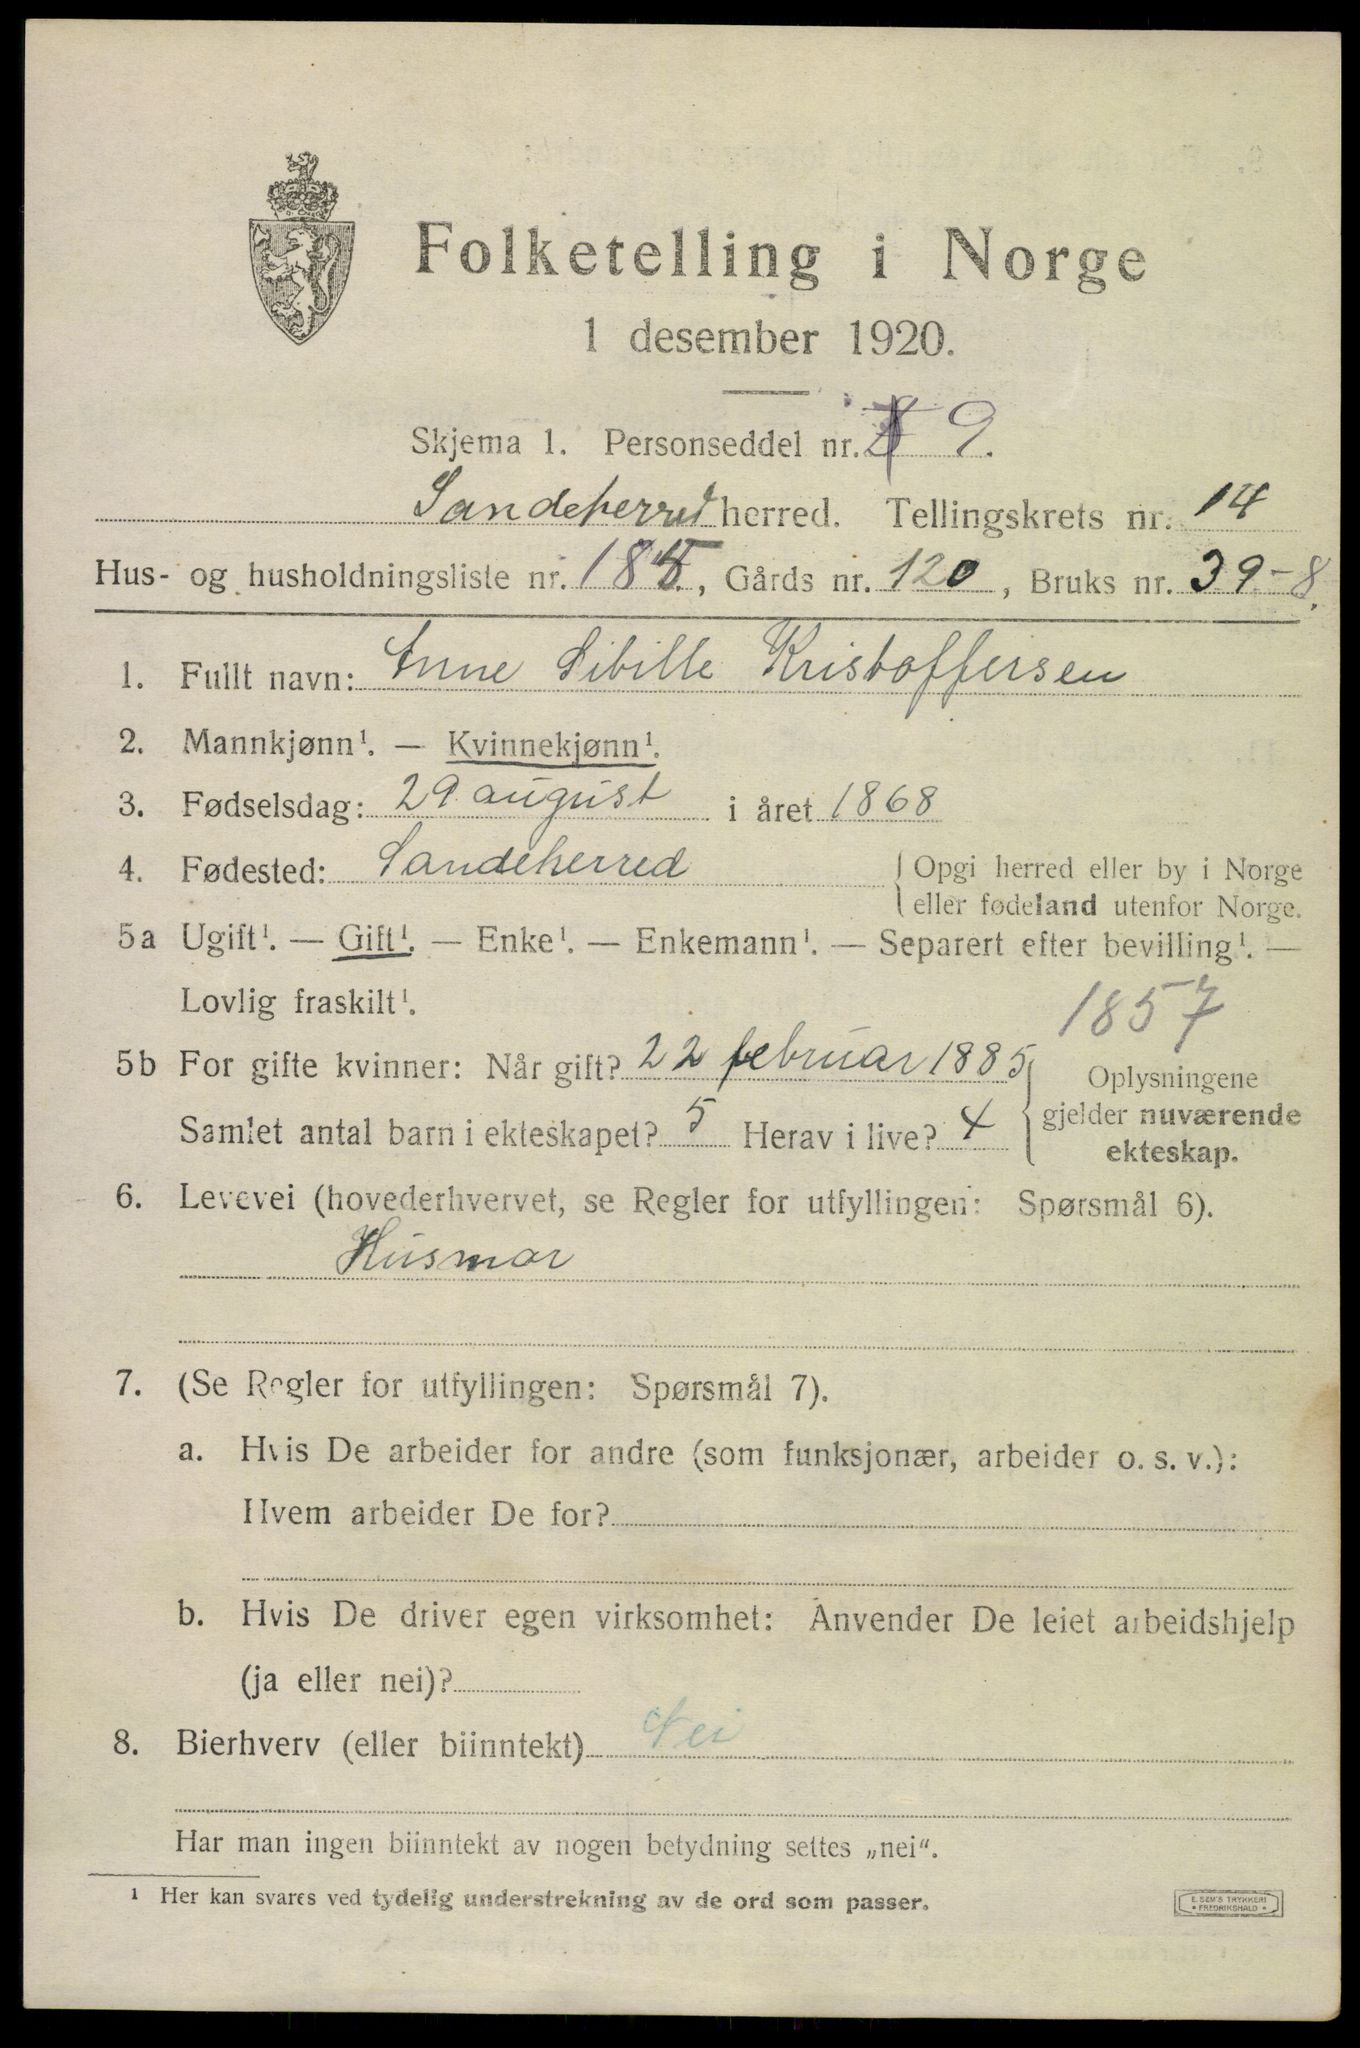 Folketelling i Norge
1 desember 1920.
Skjema 1. Personseddel nr. 9.
Sandeherred herred. Tellingskrets nr. 14
Hus- og husholdningsliste nr. 185, Gårds nr. 120, Bruks nr. 39-8.
1. Fullt navn: Anne Sibille Kristoffersen
2. Mannkjønn¹. — Kvinnekjønn¹.
3. Fødselsdag: 29 august i året 1868
4. Fødested: Sandeherred { Opgi herred eller by i Norge
eller fødeland utenfor Norge.
5a Ugift¹. — Gift¹. — Enke¹. — Enkemann¹. — Separert efter bevilling¹. —
Lovlig fraskilt¹.
1857
5b For gifte kvinner: Når gift? 22 februar 1885 { Oplysningene
Samlet antal barn i ekteskapet? 5 Herav i live? 4 gjelder nuværende
ekteskap.
6. Levevei (hovederhvervet, se Regler for utfyllingen: Spørsmål 6).
Husmor
7. (Se Regler for utfyllingen: Spørsmål 7).
a. Hvis De arbeider for andre (som funksjonær, arbeider o. s. v.):
Hvem arbeider De for?
b. Hvis De driver egen virksomhet: Anvender De leiet arbeidshjelp
(ja eller nei)?
8. Bierhverv (eller biinntekt) Nei
Har man ingen biinntekt av nogen betydning settes „nei“.
¹ Her kan svares ved tydelig understrekning av de ord som passer.
E. SEM'S TRYKKERI
• FREDRIKSHALD •